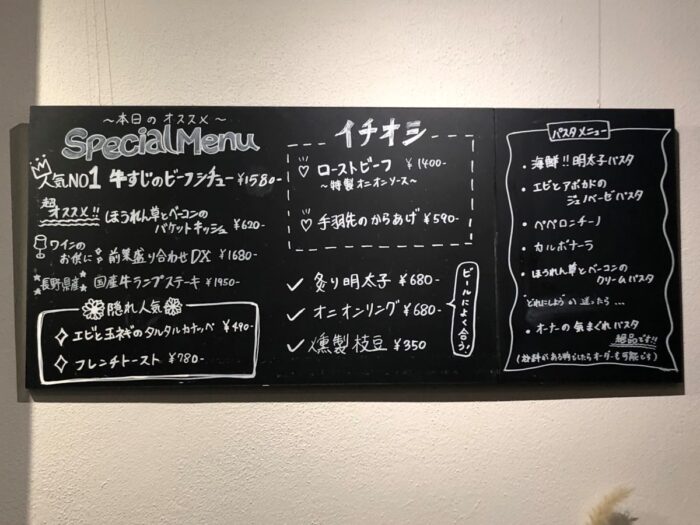 ～本日のオススメ～
Special Menu
人気NO1 牛すじのビーフシチュー ¥1580-
超オススメ!! ほうれん草とベーコンの
バケットキッシュ ¥620-
ワインのお供に 前菜盛り合わせDX ¥1680-
長野県産 国産牛ランプステーキ ¥1950-
隠れ人気
エビと玉ねぎのタルタルカナッペ ¥490-
フレンチトースト ¥780-
イチオシ
ローストビーフ ¥1400-
～特製オニオンソース～
手羽先のからあげ ¥590-
炙り明太子 ¥680-
オニオンリング ¥680-
燻製枝豆 ¥350
ビールによく合う!
パスタメニュー
・海鮮!!明太子パスタ
・エビとアボカドの
ジェノベーゼパスタ
・ペペロンチーノ
・カルボナーラ
・ほうれん草とベーコンの
クリームパスタ
どれにしようか迷ったら…
・オーナーの気まぐれパスタ
絶品です!!
(材料がある時でしたらオーダーも可能です)